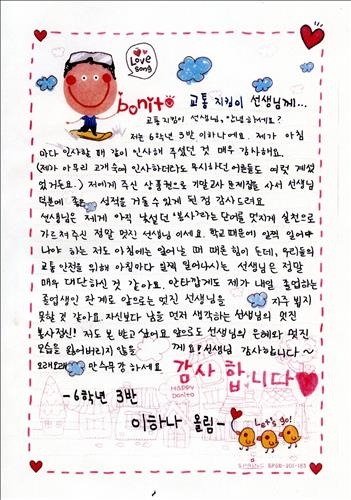 Love song
bonito
교통 지킴이 선생님께...
교통 지킴이 선생님, 안녕하세요?
저는 6학년 3반 이하나예요. 제가 아침
마다 인사할 때 같이 인사해 주셨던 것 매우 감사해요.
(제가 아무리 고개 숙여 인사하더라도 무시하던 어른들도 여럿 계셨
었거든요.) 저에게 주신 상품권으로 기말고사 문제집을 사서 선생님
덕분에 좋은 성적을 거둘 수 있게 된 점 감사드려요
선생님은 제게 아직 낯설던 '봉사'라는 단어를 멋지게 실천으로
가르쳐주신 정말 멋진 선생님 이세요. 학교 때문에 일찍 일어나
나야 하는 저도 아침에는 일어날 때 매우 힘이 든데, 우리들의
교통 안전을 위해 아침마다 일찍 일어나시는 선생님은 정말
매우 대단하신 것 같아요. 안타깝게도 제가 내일 졸업하는
졸업생인 관계로 앞으로는 멋진 선생님을 자주 뵙지
못할 것 같아요. 자신보다 남을 먼저 생각하는 선생님의 멋진
봉사정신! 저도 본 받고 싶어요 앞으로도 선생님의 은혜와 멋진
모습을 잃어버리지 않을 께요! 선생님 감사합니다~
오래오래 만수무강 하세요
감사 합니다
-6학년 3반
이하나 올림-
HAPPY
bonito
Let's go!